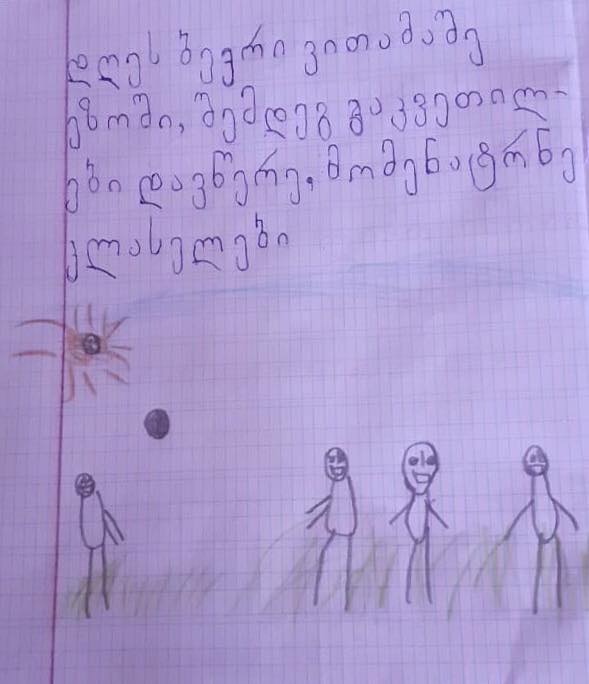 დღეს ბევრი ვითამაშე
ეზოში, შემდეგ გაკვეთილ-
ები დავწერე. მომენატრნე
კლასელები